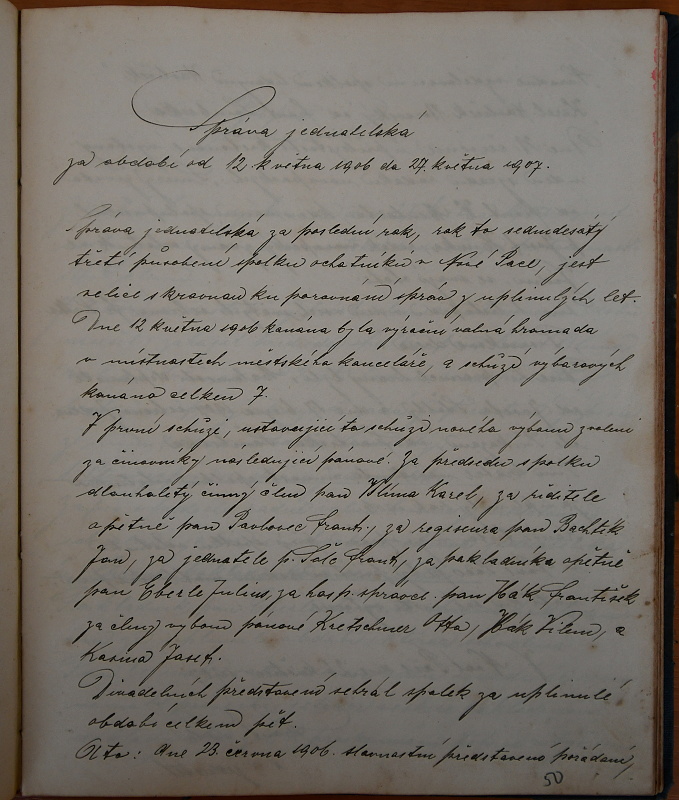 Správa jednatelská
za období od 12 května 1906 do 27. května 1907.
Správa jednatelská za poslední rok, rok to sedmdesátý
třetí působení spolku ochotníků v Nové Pace, jest
velice skrovnou ku porovnání správ z uplinulých let.
Dne 12 května 1906 konána byla výroční valná hromada
v místnostech městského kanceláře, a schůzí výborových
konáno celkem 7.
V první schůzi, ustavující to schůzi nového výboru zvoleni
za činovníky následující pánové. Za předsedu spolku
dlouholetý činný člen pan Klíma Karel, za řiditele
opětně pan Pavlovec Frant., za regiseura pan Bachtík
Jan, za jednatele p. Šolc Frant., za pokladníka opětně
pan Eberle Julius, za hosp. správce. pan Hák František
za členy výboru pánové Kretschmer Otto, Hák Vilem, a
Kosina Josef.
Divadelních představení sehrál spolek za uplinulé
období celkem pět.
A to: dne 23. června 1906. slavnostní představení pořádané,
50